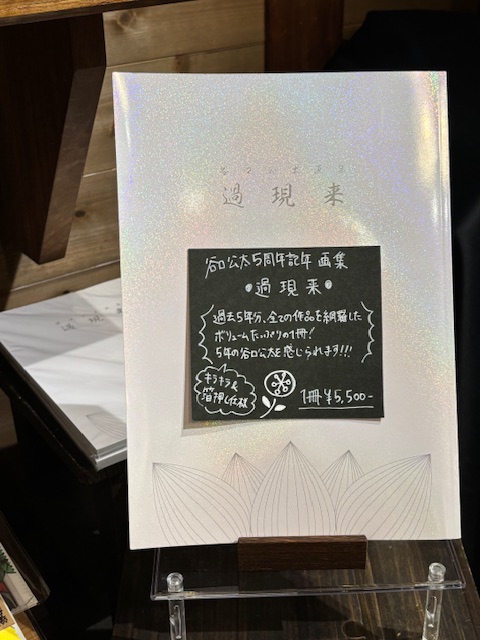 過現来
谷口公太5周年記年 画集
過現来
過去5年分、全ての作品を網羅した
ボリュームたっぷりの1冊!
5年の谷口公太を感じられます!!!
キラキラ&
箔押し仕様
1冊 ¥5,500-
過現来